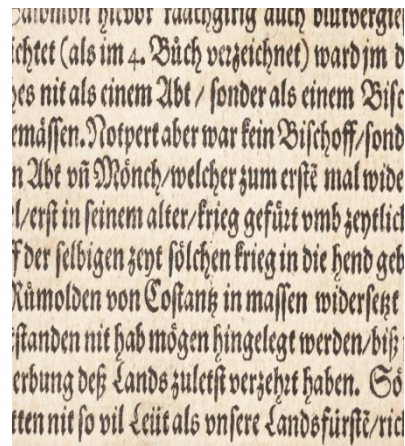 Salomon hievor raachgirig auch blutvergie
chtet (als im 4. Bůch verzeichnet) ward jm d
es nit als einem Abt / sonder als einem Bisc
emässen. Notpert aber war kein Bischoff/sond
n Abt vñ Mönch/welcher zum erstẽ mal wide
l/erst in seinem alter/krieg gefürt vmb zeytlich
ff der selbigen zeyt sölchen krieg in die hend geb
Růmolden von Costantz in massen widersetzt
standen nit hab mögen hingelegt werden/biß
erbung deß Lands zuletst verzehrt haben. Sö
tten nit so vil Leüt als vnsere Landsfürstẽ/rich